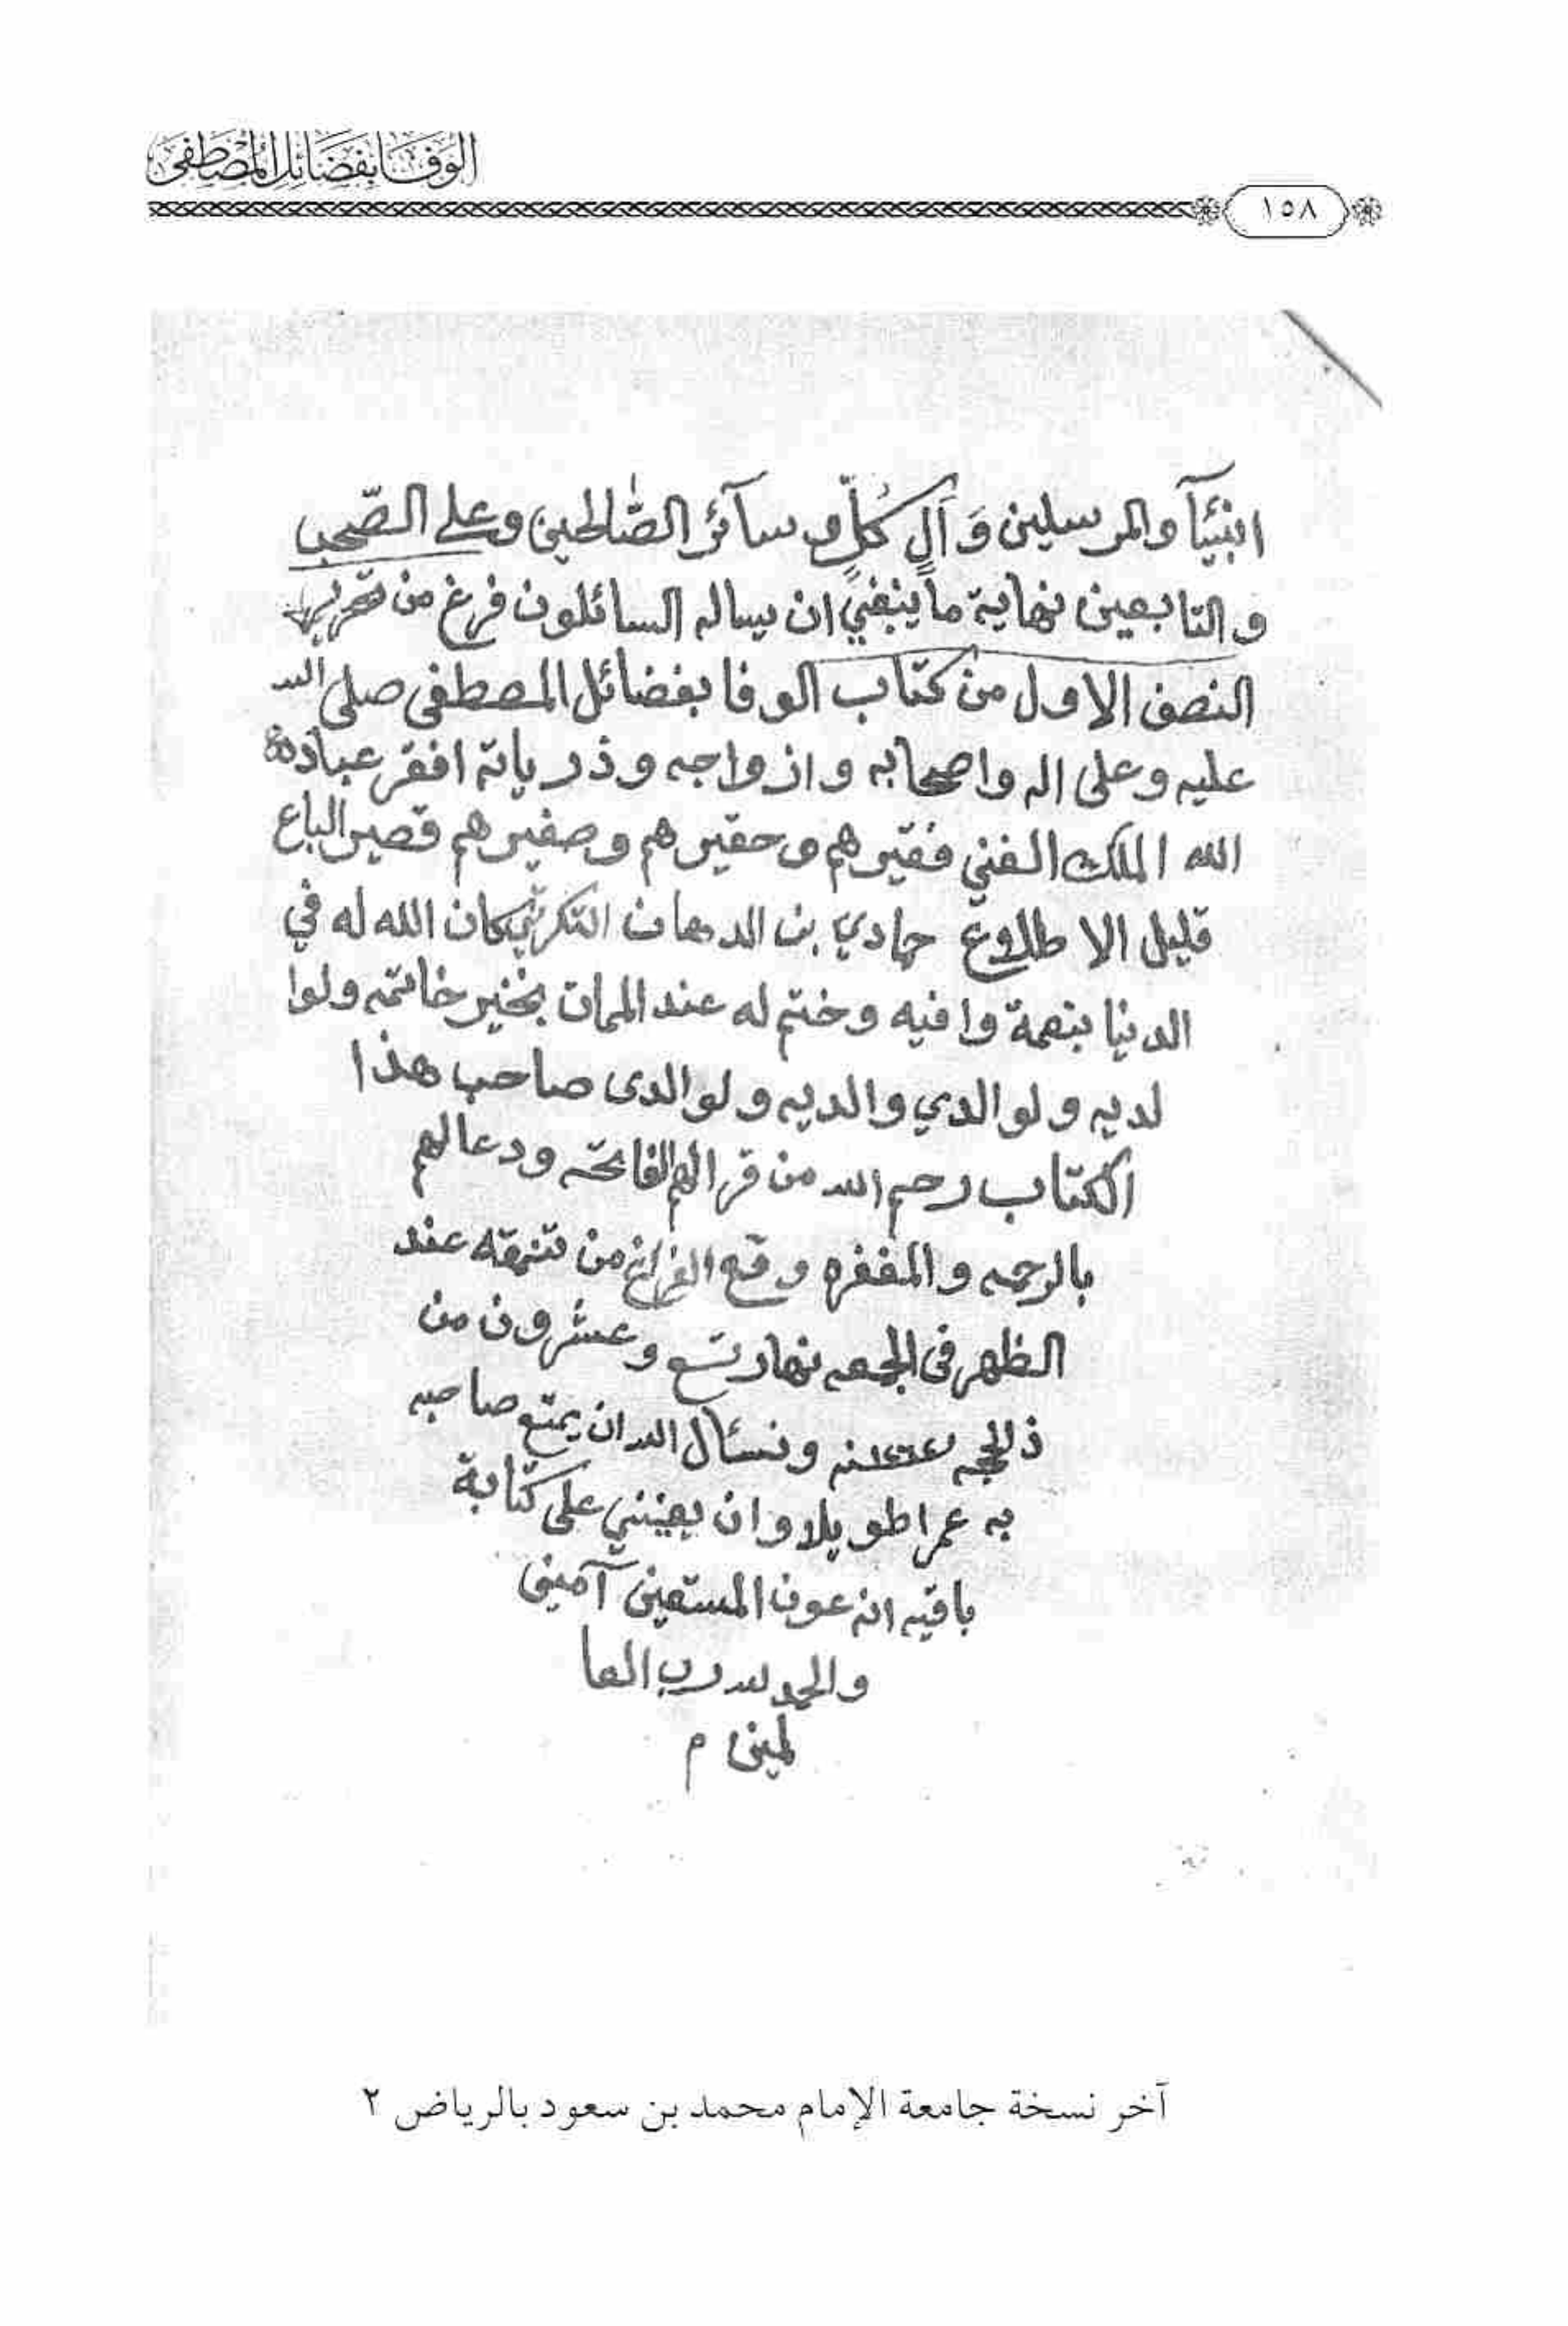 الوفا بفضائل المصطفى
١٥٨
انبيآ والمرسلين وَآلِ كُلٍّ وسآئر الصّالحين وعلى الصّحب
والتابعين نهاية ما ينبغي ان يساله السائلون فرغ من
النصف الاول من كتاب الوفا بفضائل المصطفى صلى الله
عليه وعلى اله واصحابه وازواجه وذرياته افقر عباد
الله الملك الغني فقيرهم وحقيرهم وصغيرهم قصير الباع
قليل الاطلاع حمادي بن الدهان التكريتي كان الله له في
الدنيا بنعمة وافيه وختم له عند الممات بخير خاتمه ولوا
لديه ولوالدي والديه ولوالدى صاحب هذا
الكتاب رحم الله من قرا لهم الفاتحه ودعا لهم
بالرحمه والمغفره وقع الفراغ من تنمقه عند
الظهر فى الجمعه نهار تسع وعشرون من
ذالحجه سنه ونسئال الله ان يمتع صاحبه
به عمرا طويلا وان يعينني على كتابة
باقيه انه عون المستعين آمين
والحمد لله رب العا
لمين م
آخر نسخة جامعة الإمام محمد بن سعود بالرياض ٢